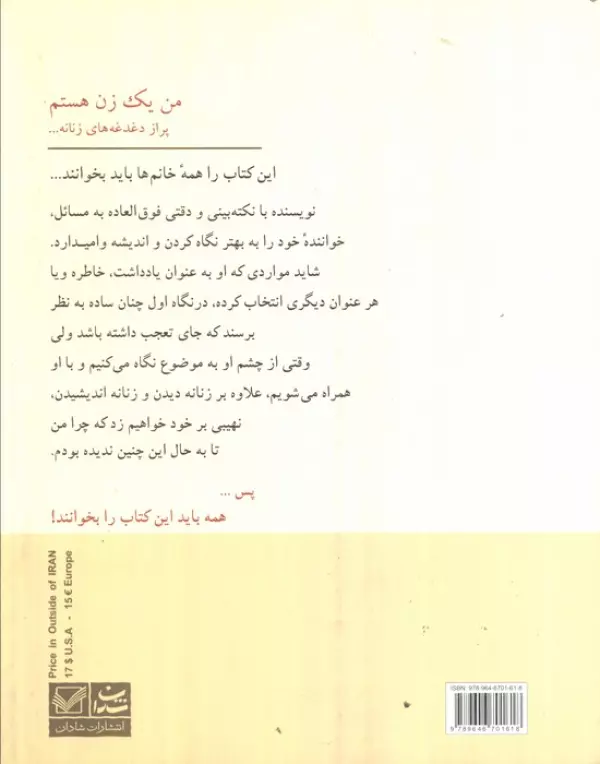 من یک زن هستم
پراز دغدغه‌های زنانه...
این کتاب را همهٔ خانم‌ها باید بخوانند...
نویسنده با نکته‌بینی و دقتی فوق‌العاده به مسائل،
خوانندهٔ خود را به بهتر نگاه کردن و اندیشه وامیدارد.
شاید مواردی که او به عنوان یادداشت، خاطره ویا
هر عنوان دیگری انتخاب کرده، درنگاه اول چنان ساده به نظر
برسند که جای تعجب داشته باشد ولی
وقتی از چشم او به موضوع نگاه می‌کنیم و با او
همراه می‌شویم، علاوه بر زنانه دیدن و زنانه اندیشیدن،
نهیبی بر خود خواهیم زد که چرا من
تا به حال این چنین ندیده بودم.
پس ...
همه باید این کتاب را بخوانند!
Price in Outside of IRAN
17 $ U.S.A - 15 € Europe
شادان
انتشارات شادان
ISBN: 978-964-6701-61-8
9 789646 701618